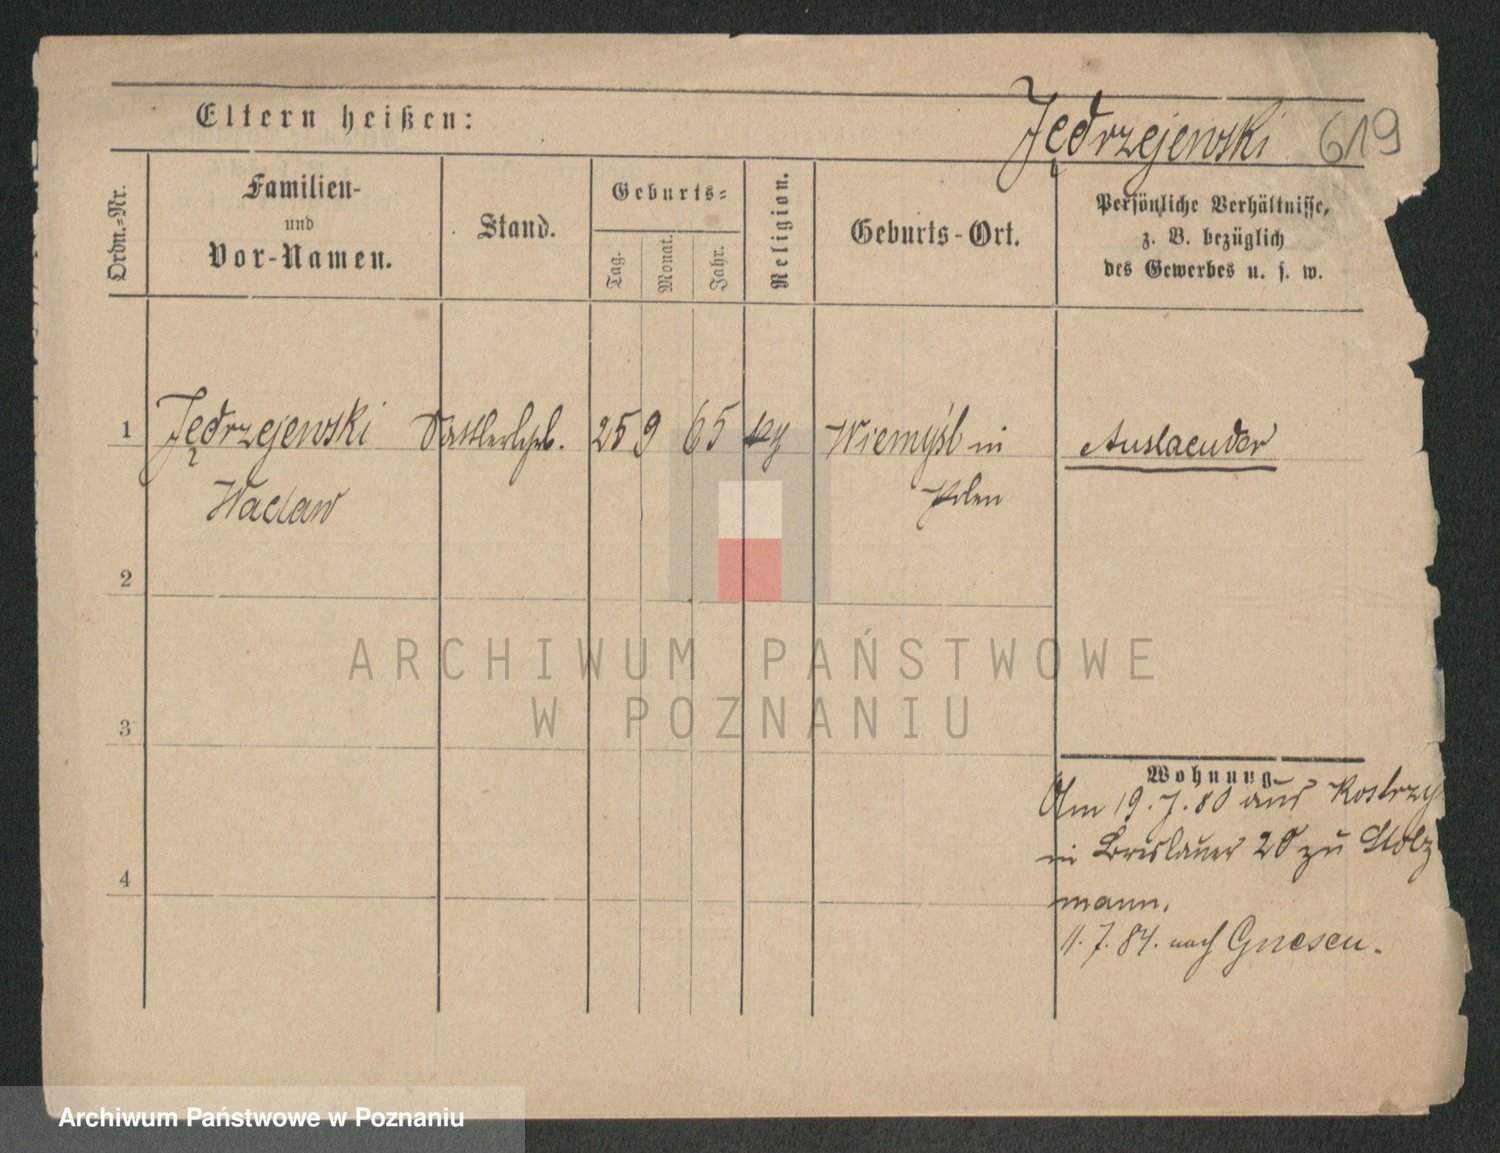 Jędrzejewski 619
Eltern heißen:
Ordn.-Nr.
Familien-
und
Vor-Namen.
Stand.
Geburts-
Tag.
Monat.
Jahr.
Religion.
Geburts-Ort.
Persönliche Verhältnisse,
z. B. bezüglich
des Gewerbes u. s. w.
1 Jędrzejewski Sattlerlehrl. 25 9 65 in Auslaender
Wacław Polen
2
3
Wohnung
Am 19.7.80 aus Kostrzyn
in Breslauer 20 zu Stolz
mann.
4
11.7.84. nach Gnesen.
ARCHIWUM PAŃSTWOWE
W POZNANIU
Archiwum Państwowe w Poznaniu